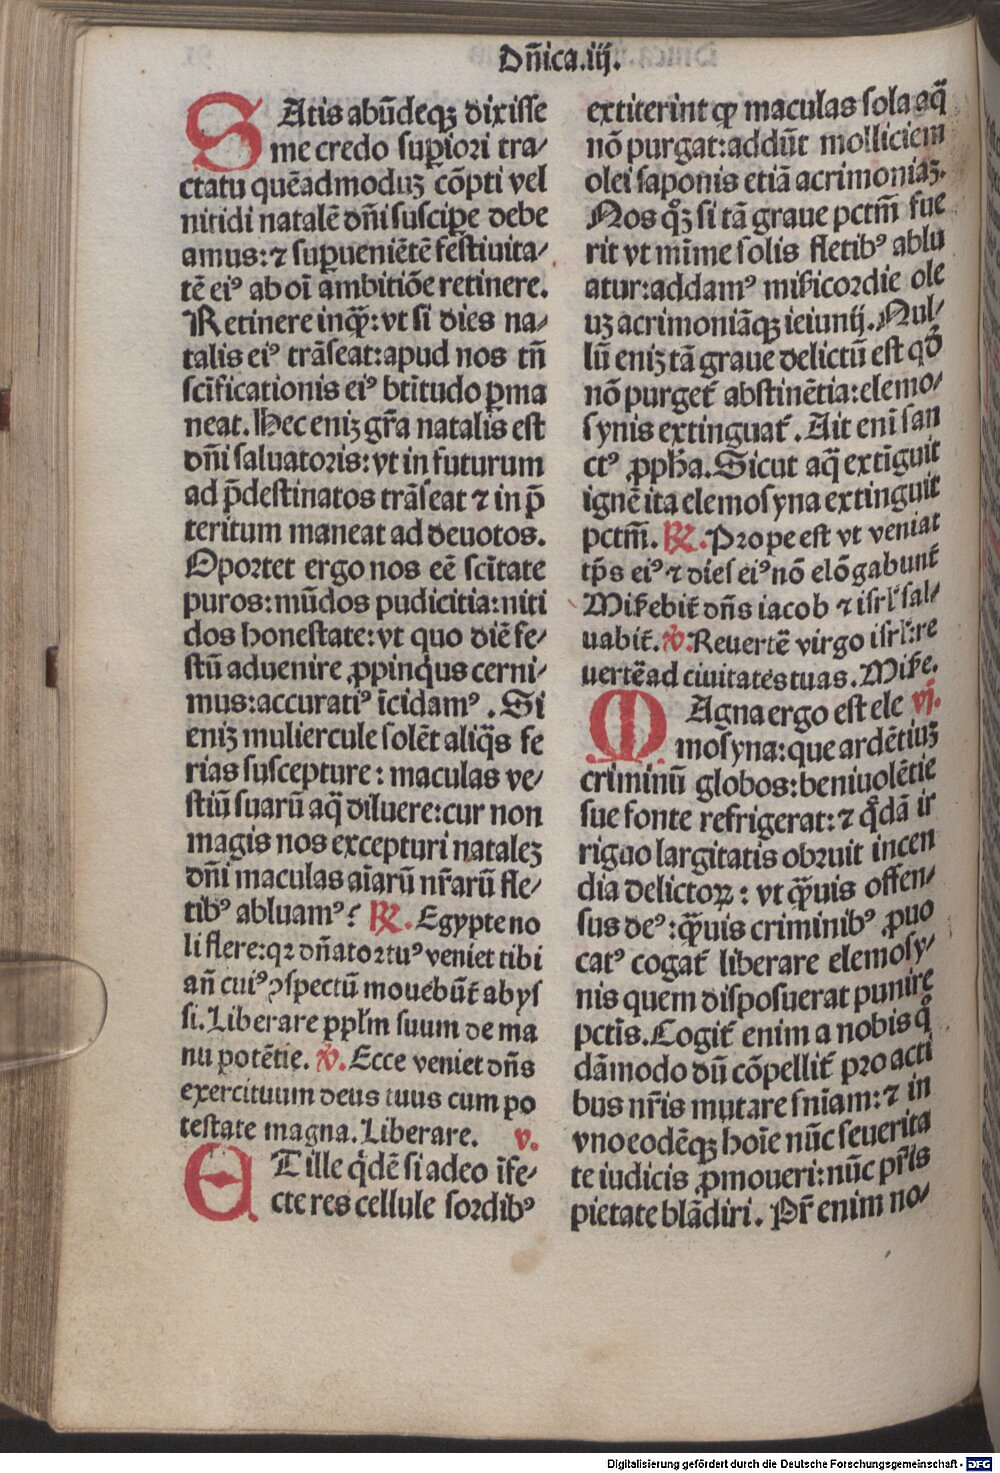 Dn̄ica.iij.
SAtis abūdeqꝫ dixisse
me credo suꝑiori tra/
ctatu quēadmoduꝫ cōpti vel
nitidi natalē dn̄i suscipe debe
amus: ⁊ suꝑueniētē festiuita/
tē eiꝰ ab oī ambitiōe retinere.
Retinere inqꝫ̄: vt si dies na/
talis eiꝰ trāseat: apud nos tn̄
scīficationis eiꝰ btītudo ꝑma
neat. Hec eniꝫ gr̄a natalis est
dn̄i saluatoris: vt in futurum
ad p̄destinatos trāseat ⁊ in p̄
teritum maneat ad deuotos.
Oportet ergo nos eē scītate
puros: mūdos pudicitia: niti
dos honestate: vt quo diē fe/
stū aduenire ꝓpinqͥus cerni/
mus: accuratiꝰ īcidamꝰ. Si
eniꝫ muliercule solēt aliqͣs fe
rias suscepture: maculas ve/
stiū suarū aq̄ diluere: cur non
magis nos excepturi nataleꝫ
dn̄i maculas aīarū nr̄arū fle/
tibꝰ abluamꝰ? ℟. Egypte no
li flere: qꝛ dn̄ator tuꝰ veniet tibi
añ cuiꝰ ꝯspectū mouebūt̄ abys
si. Liberare ppl̄m suum de ma
nu potētie. ℣. Ecce veniet dn̄s
exercituum deus tuus cum po
testate magna. Liberare. v.
ET ille qͥdē si adeo īfe/
cte res cellule sordibꝰ
extiterint ꝙ maculas sola aq̄
nō purgat: addūt molliciem
olei saponis etiā acrimoniaꝫ.
Nos qͦꝫ si tā graue pctm̄ fue
rit vt mīme solis fletibꝰ ablu
atur: addamꝰ mīẜicordie ole
uꝫ acrimoniāqꝫ ieiunij. Nul/
lū eniꝫ tā graue delictū est qd̓
nō purget̄ abstinētia: elemo/
synis extinguat̄. Ait enī san
ctꝰ ꝓpħa. Sicut aq̄ extīguit
ignē ita elemosyna extinguit
pctm̄. ℟. Prope est vt veniat
tp̄s eiꝰ ⁊ dies eiꝰ nō elōgabunt̄
Miẜebit̄ dn̄s iacob ⁊ isrl̓ sal/
uabit̄. ℣. Reuertē virgo isrl̓: re
uertē ad ciuitates tuas. Miẜe.
MAgna ergo est ele vj.
mosyna: que ardētiuꝫ
criminū globos: beniuolētie
sue fonte refrigerat: ⁊ qͣdā ir
riguo largitatis obruit incen
dia delictoꝝ: vt qꝫ̄uis offen/
sus deꝰ: qꝫ̄uis criminibꝰ ꝓuo
catꝰ cogat̄ liberare elemosy/
nis quem disposuerat punire
pctīs. Cogit̄ enim a nobis qͦ
dāmodo dū cōpellit̄ pro acti
bus nr̄is mutare sn̄iam: ⁊ in
vno eodēqꝫ hoīe nūc seuerita
te iudicis ꝓmoueri: nūc pr̄is
pietate blādiri. Pr̄ enim no/
Digitalisierung gefördert durch die Deutsche Forschungsgemeinschaft - DFG